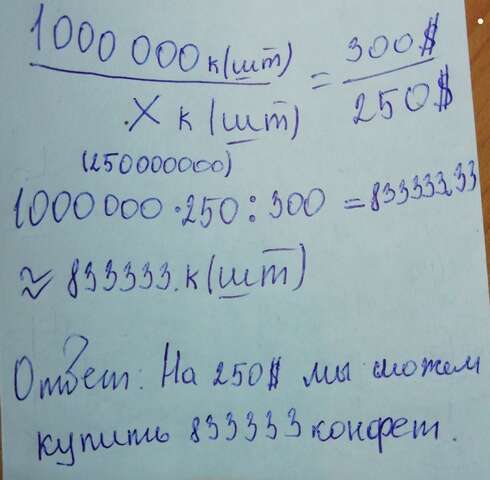 1000 000 к(шт) = 300$
X к (шт) 250$
(250000000)
1000 000 · 250 : 300 = 833333,33
≈ 833333.к(шт)
Ответ: На 250$ мы можем
купить 833333 конфет.